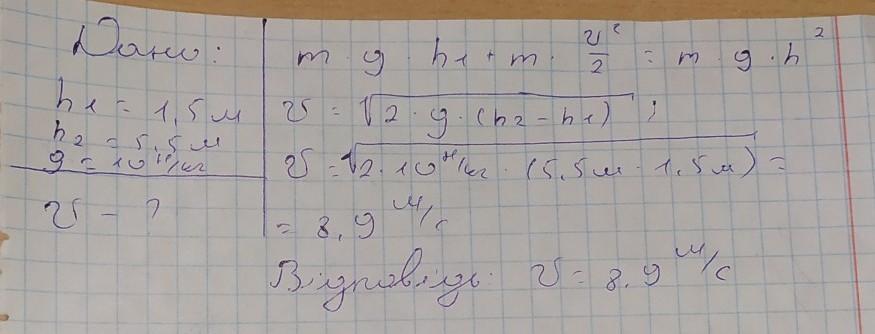 Дано:
h1 = 1,5 м
h2 = 5,5 м
g = 10 Н/кг
v - ?
m · g · h1 + m · v²/2 = m · g · h²
v = √2 · g · (h2 - h1) ;
v = √2 · 10 Н/кг · (5,5 м - 1,5 м) =
= 8,9 м/с
Відповідь: v = 8,9 м/с